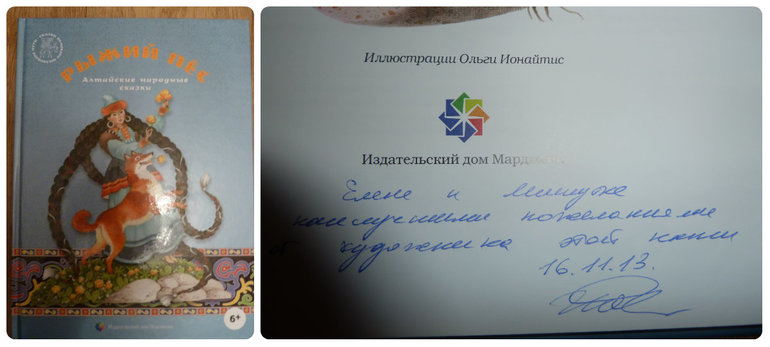 Рыжий пёс
Алтайские народные
сказки
Издательский дом Мещерякова
6+
Иллюстрации Ольги Ионайтис
Издательский дом
Елене и Мишутке
наилучшими пожеланиями
от художника этой книги
16.11.13.